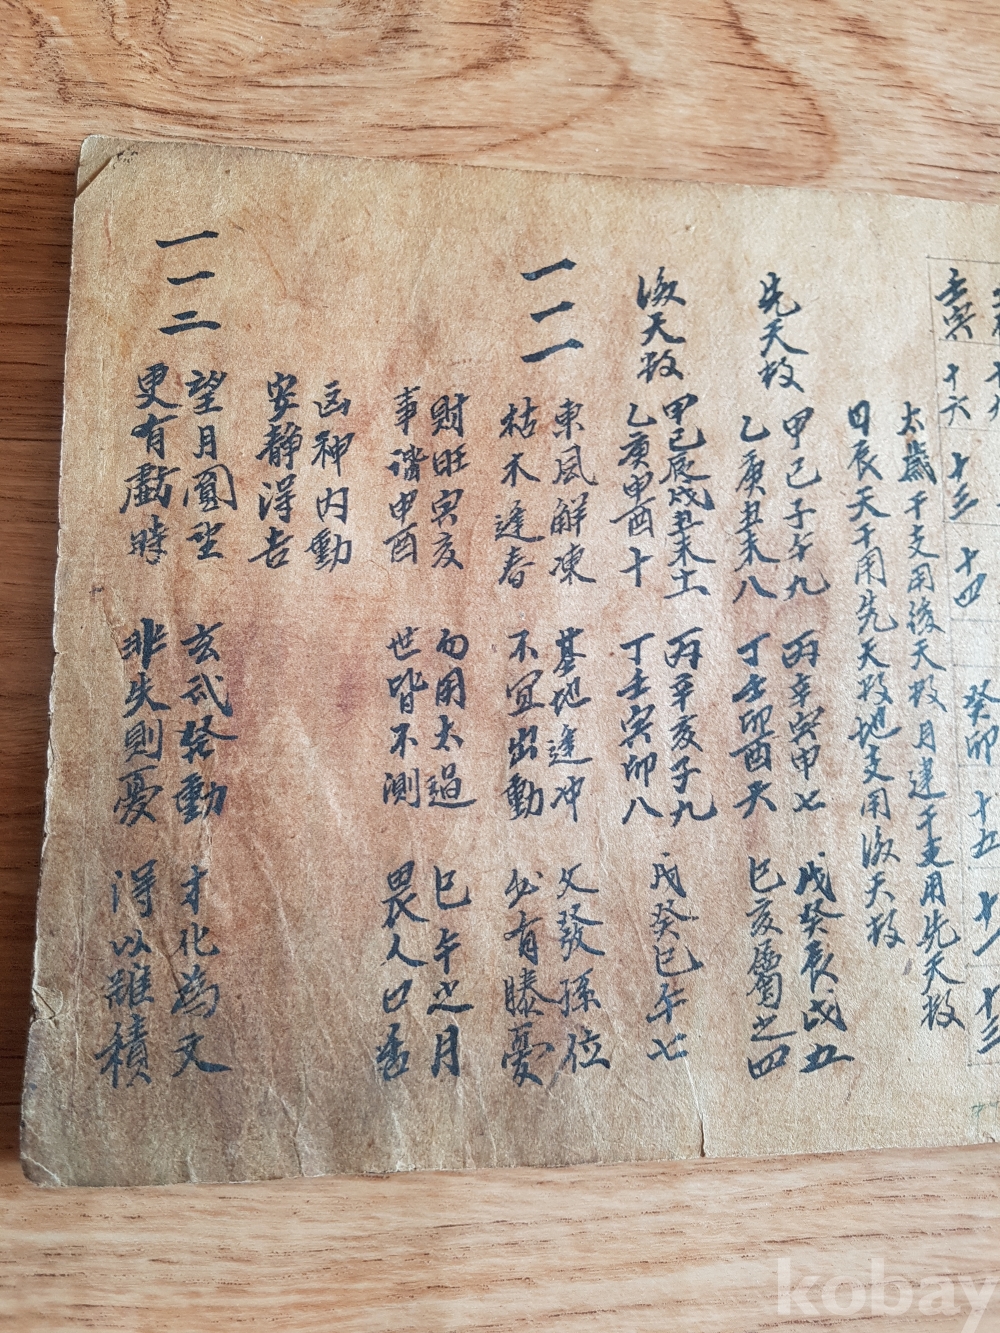 十六 十三 十四 癸卯 十五
太歲干支用後天数月建干支用先天数
日辰天干用先天数地支用後天数
先天数
甲己子午九 丙辛寅申七 戊癸辰戌五
乙庚丑未八 丁壬卯酉六 巳亥屬之四
後天数
甲己辰戌丑未土 丙辛亥子九 戊癸巳午七
乙庚申酉十 丁壬寅卯八
一一一
東風解凍 基地逢冲 父發孫位
枯木逢春 不宜出動 必有膝憂
財旺寅亥 白用太過 巳午之月
事諧申酉 世皆不測 畏人口
凶神內動
安靜得吉
一一二
望月圓 玄武發動 才化為父
更有虧時 非失則憂 得以難積
kobay